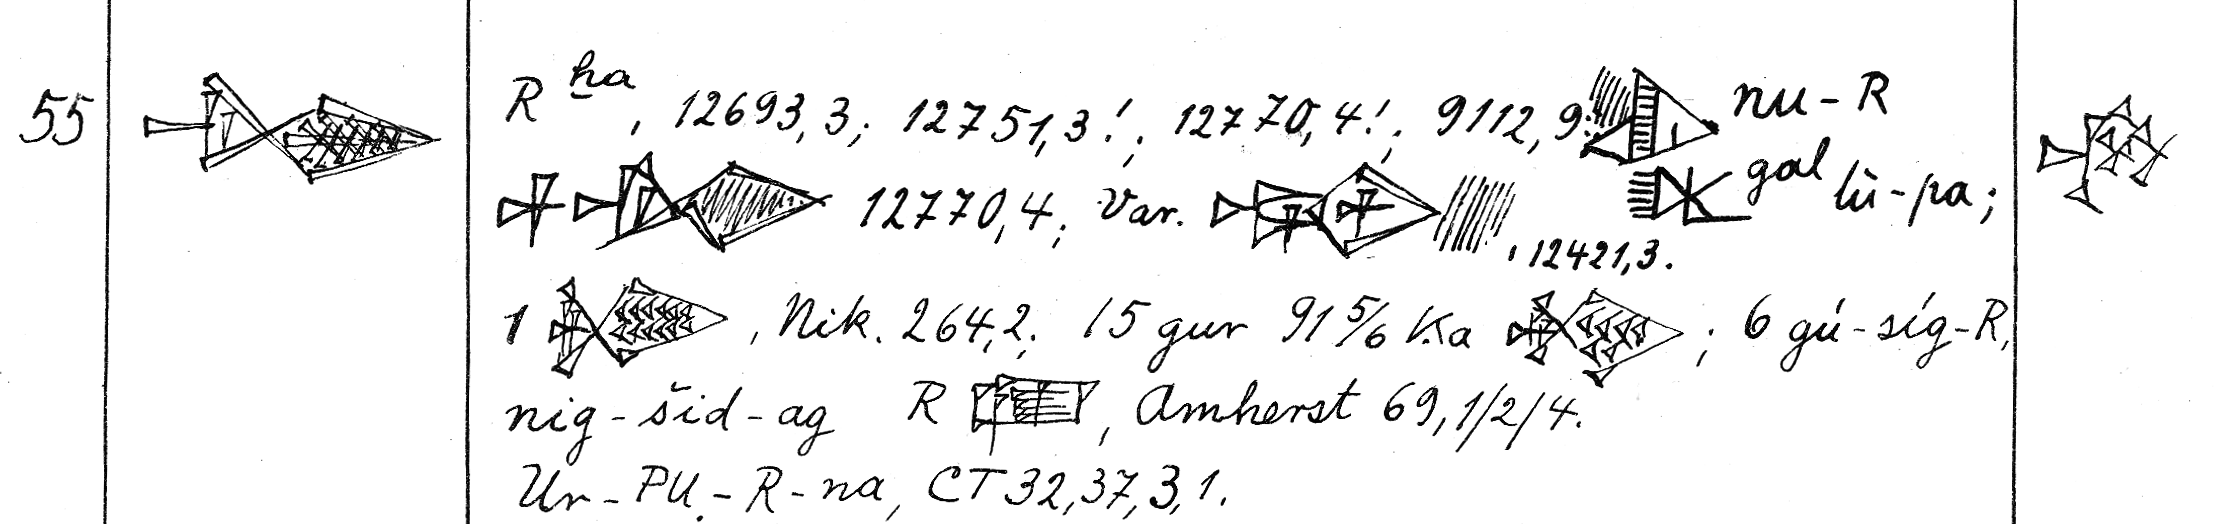 55
R ḫa, 12693,3; 12751,3!; 12770,4!; 9112,9: nu-R
12770,4; Var. gal lù-pa;
, 12421,3.
1 , Nik. 264,2; 15 gur 91 5/6 Ka ; 6 gú-síg-R,
nig-šid-ag R , Amherst 69,1/2/4.
Ur-PU.-R-na, CT 32,37,3,1.